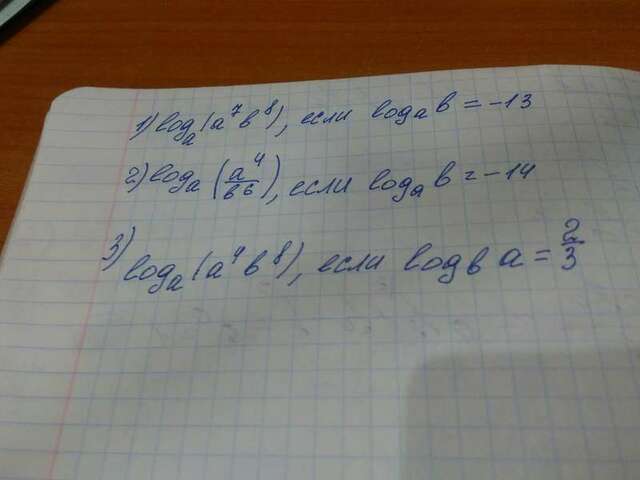 1) logₐ(a⁷b⁸), если logₐb = -13
2) logₐ(a⁴/b⁶), если logₐb = -14
3) logₐ(a⁴b⁸), если log_b a = 2/3